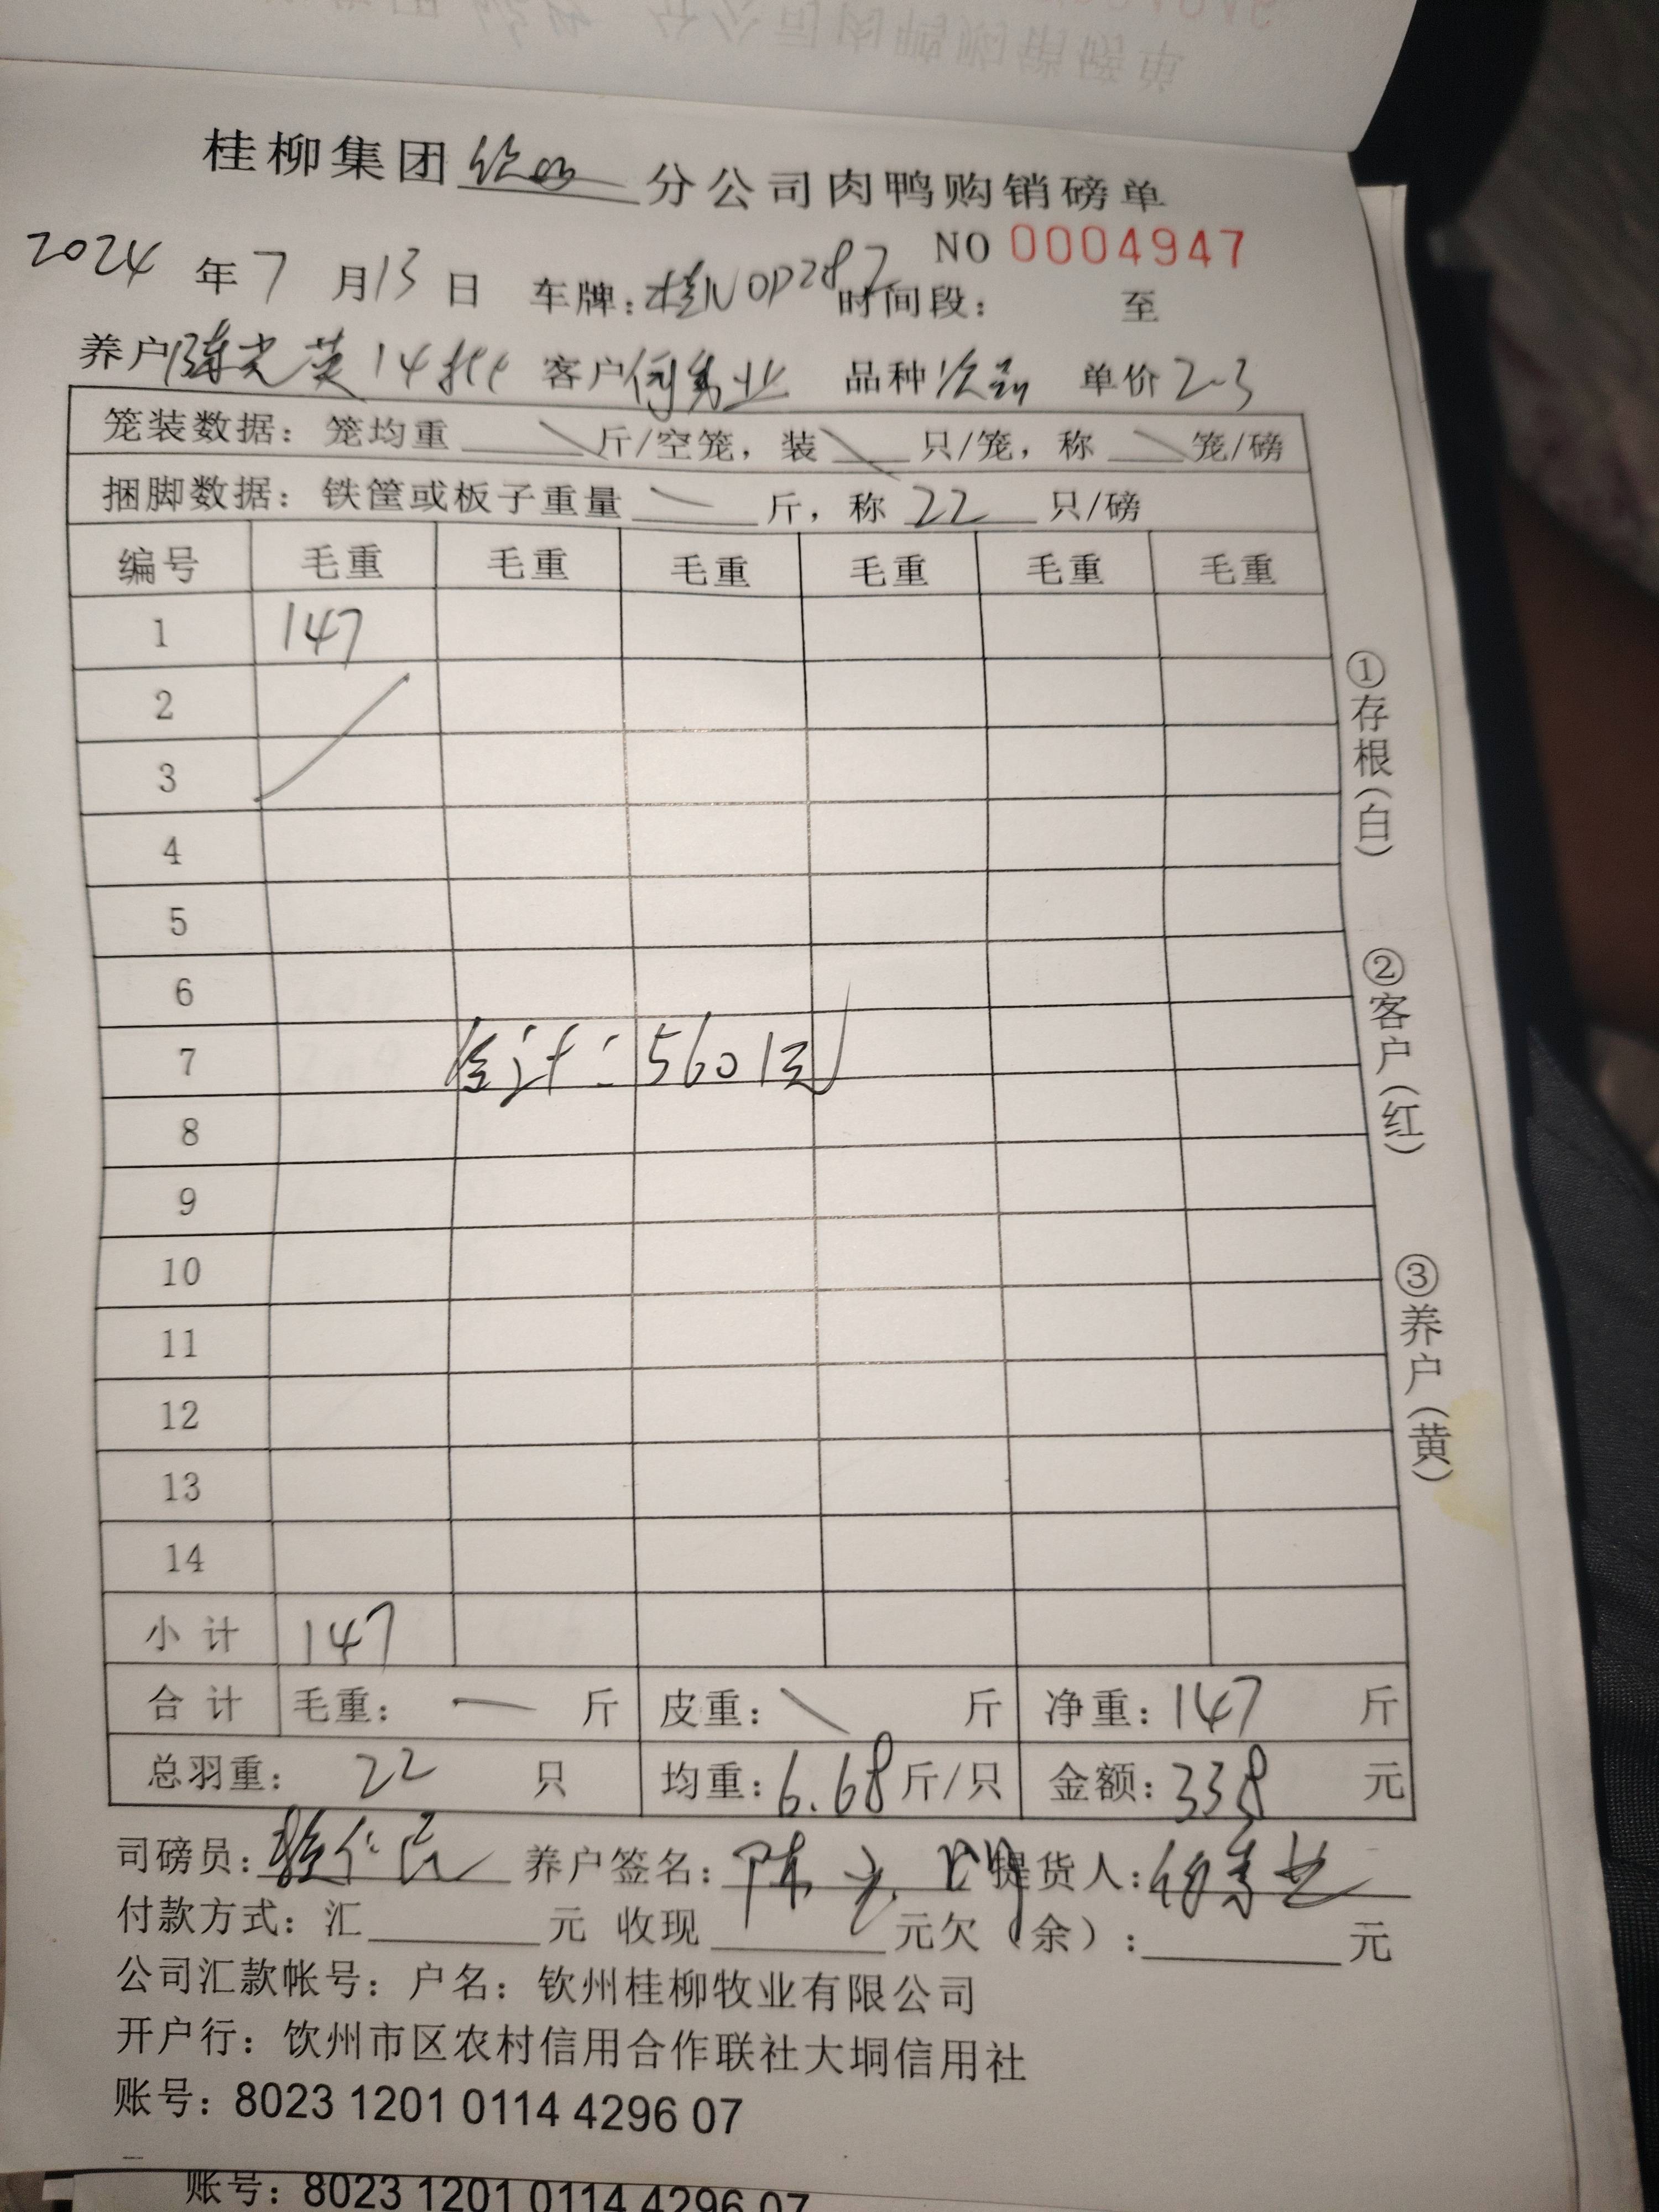 桂柳集团 分公司肉鸭购销磅单
NO 0004947
2024 年 7 月 13 日 车牌: 桂N0P287 时间段: 至
养户 陈光英 14批 客户 何秀业 品种 次品 单价 2-3
笼装数据: 笼均重 斤/空笼, 装 只/笼, 称 笼/磅
捆脚数据: 铁筐或板子重量 — 斤, 称 22 只/磅
编号 毛重 毛重 毛重 毛重 毛重 毛重
1 147
2
3
4
5
6
7 合计: 5601元
8
9
10
11
12
13
14
小计 147
合计 毛重: — 斤 皮重: 斤 净重: 147 斤
总羽重: 22 只 均重: 6.68 斤/只 金额: 338 元
司磅员: 养户签名: 陈光 提货人: 何秀业
付款方式: 汇 元 收现 元欠(余): 元
公司汇款帐号: 户名: 钦州桂柳牧业有限公司
开户行: 饮州市区农村信用合作联社大垌信用社
账号: 8023 1201 0114 4296 07
①存根(白)
②客户(红)
③养户(黄)
账号: 8023 1201 0114 4296 07